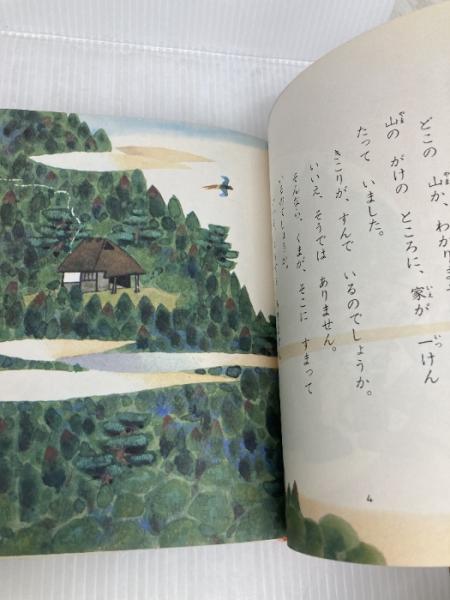 どこの 山か、わかりま
山の がけの ところに、家が 一けん
たって いました。
きこりが、すんで いるのでしょうか。
いいえ、そうでは ありません。
そんなら、くまが、そこに すまって
いるのでしょうか。
4